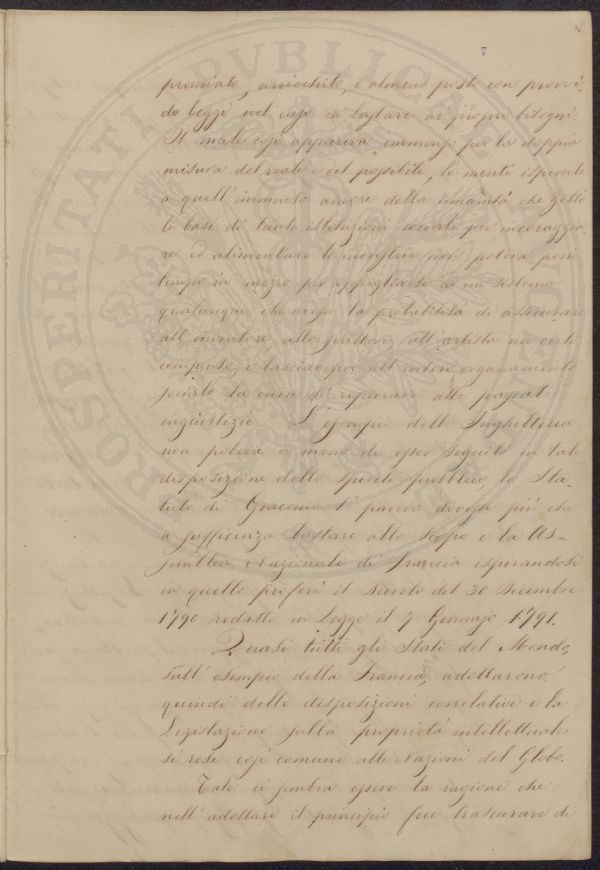 7
premiato, arricchito, o almeno posto con provvi
de leggi nel caso di bastare ai propri bisogni.
Il male così appariva immenso per la doppia
misura del reale e del possibile, le menti ispirate
a quell'immenso amore della umanità che gettò
le basi di tante istituzioni sociali per incoraggia
re ed alimentare le industrie non poteva porre
tempo in mezzo per appigliarsi ad un sistema
qualunque che avesse la probabilità di assicurare
all'inventore, allo scrittore, all'artista un certo
compenso, e lasciar poi all'intero organamento
sociale la cura di riparare alle passate
ingiustizie. L'esempio dell'Inghilterra
non poteva a meno di esser seguito in tale
disposizione dello spirito pubblico, lo Sta-
tuto di Giacomo I° pareva dovesse più che
a sufficienza bastare allo scopo e la As-
semblea Nazionale di Francia ispirandosi
in quello proferì il Decreto del 30 Dicembre
1790 redatto in Legge il 7 Gennajo 1791.
Quasi tutti gli Stati del Mondo,
sull'esempio della Francia, adottarono
quindi delle disposizioni correlative e la
Legislazione sulla proprietà intellettuale
si rese così comune alle Nazioni del Globo.
Tale ci sembra essere la ragione che
nell'adottare il principio fece trascurare di
PROSPERITATI PVBLICAE